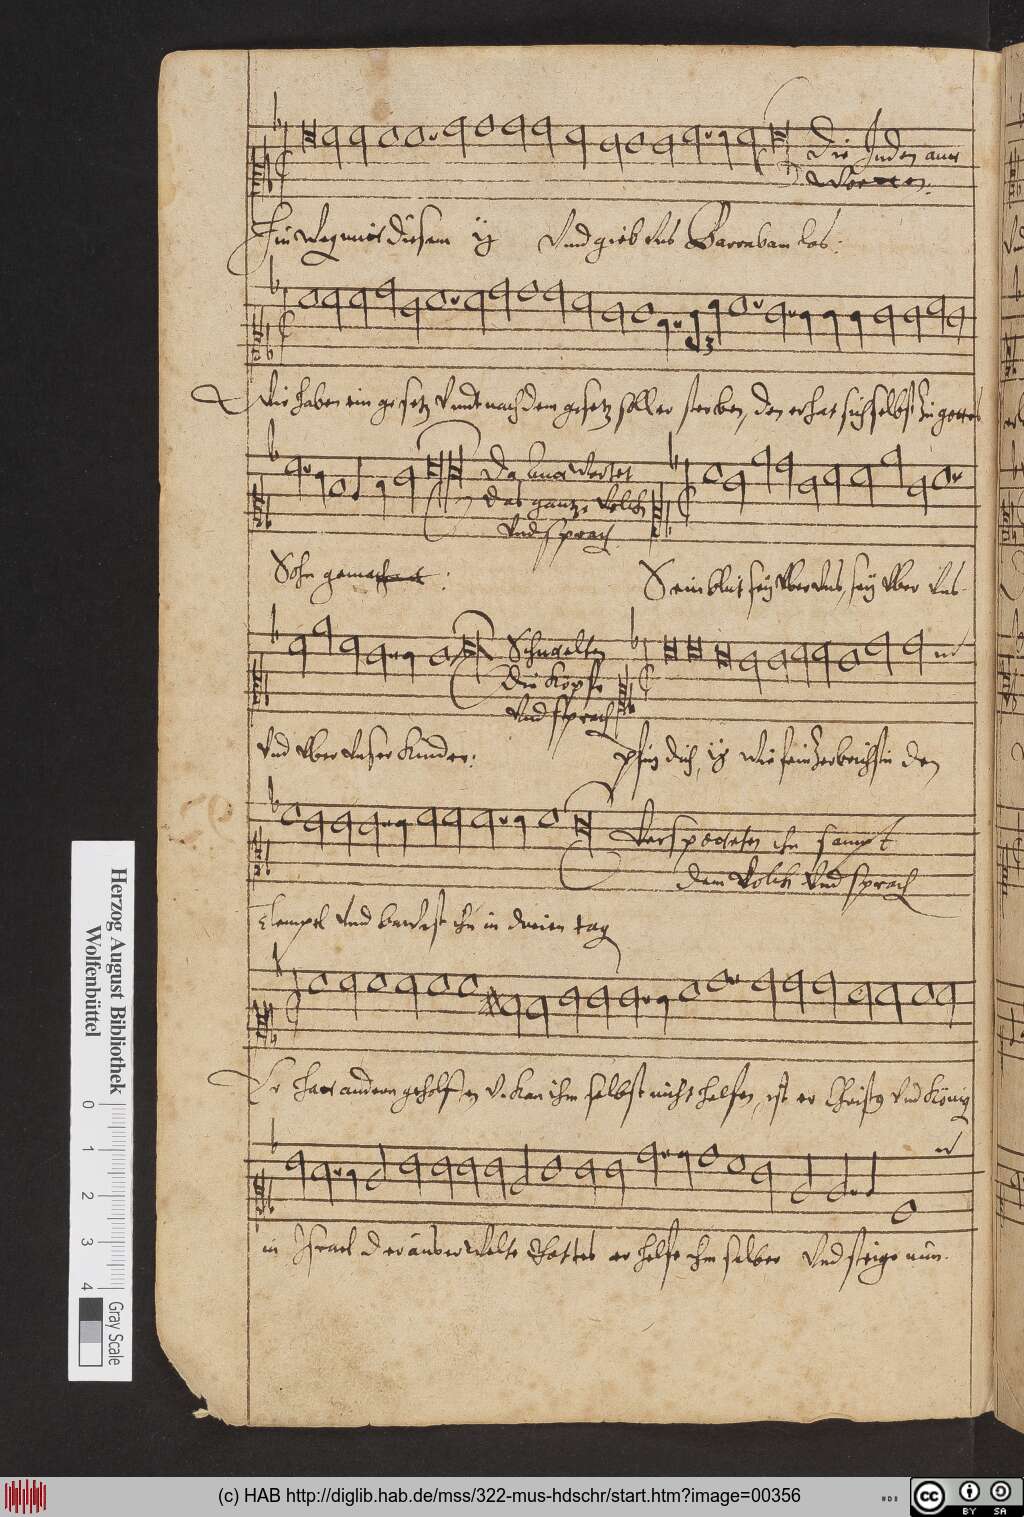 Die Juden antt
Worten:
Hin weg mit diesem ij Vnd gieb vns Barraban los:
Wir haben ein gesetz Vnndt nach dem gesetz soll er sterben, den er hat sich selbst zu gottes
Da antwortet
das gantze Volck
Vnd sprach
Sohn gemachet: Sein blut sey vber vns, sey vber vns
Schuttelten
die Köpfe
Vnd sprach
Vnd vber vnser Kinder: pfuy dich, ij wie fein zerbrichstu den
Verspotteten ihn sampt
dem Volck Vnd sprach
Tempel Vnd bawest ihn in dreien tag
Er hatt andern geholffen V. kan ihm selbst nicht helfen, ist er Christus Vnd König
in Israel der ausserwelte Gottes er helfe ihm selber Vnd steige nun.
Herzog August Bibliothek
Wolfenbüttel
0 1 2 3 4
Gray Scale
(c) HAB http://diglib.hab.de/mss/322-mus-hdschr/start.htm?image=00356
cc BY SA